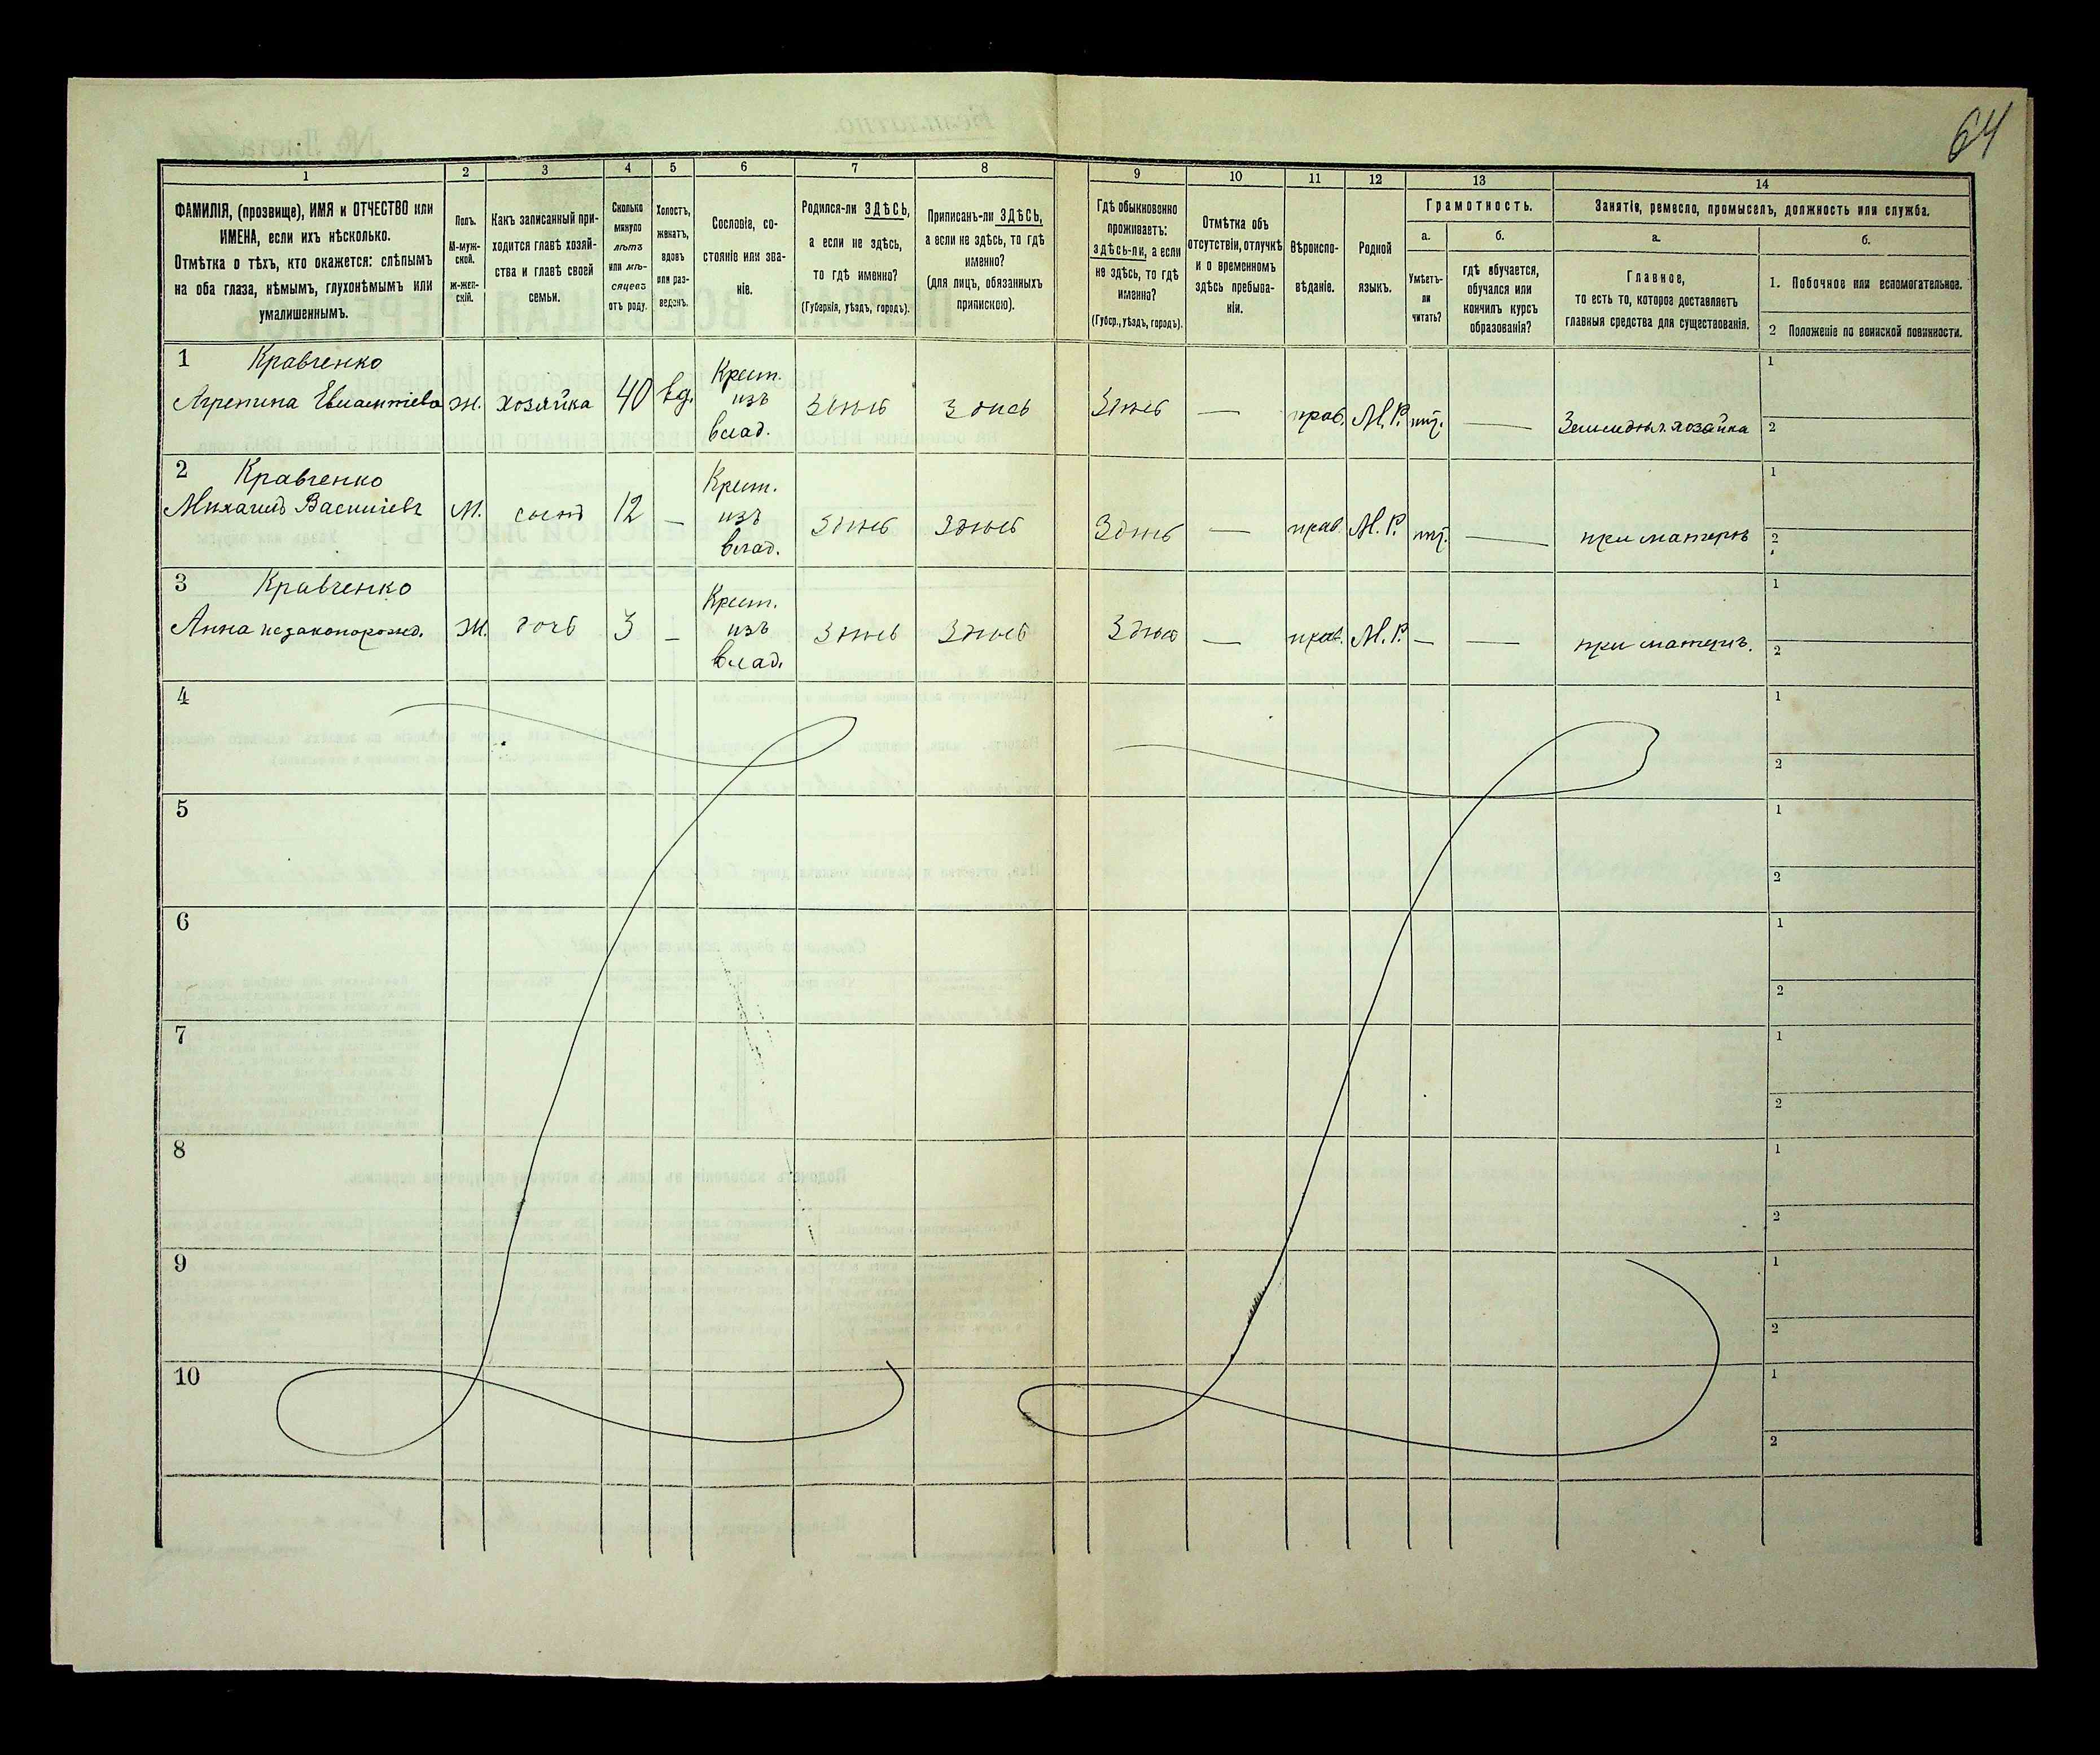 64
1 2 3 4 5 6 7 8 9 10 11 12 13 14
ФАМИЛІЯ, (прозвище), ИМЯ и ОТЧЕСТВО или
ИМЕНА, если ихъ нѣсколько.
Отмѣтка о тѣхъ, кто окажется: слѣпымъ
на оба глаза, нѣмымъ, глухонѣмымъ или
умалишеннымъ.
Полъ.
М-муж-
ской.
Ж-жен-
скій.
Какъ записанный при-
ходится главѣ хозяй-
ства и главѣ своей
семьи.
Сколько
минуло
лѣтъ
или мѣ-
сяцевъ
отъ роду.
Холостъ,
женатъ,
вдовъ
или раз-
веденъ.
Сословіе, со-
стояніе или зва-
ніе.
Родился-ли ЗДѢСЬ,
а если не здѣсь,
то гдѣ именно?
(Губернія, уѣздъ, городъ).
Приписанъ-ли ЗДѢСЬ,
а если не здѣсь, то гдѣ
именно?
(для лицъ, обязанныхъ
припискою).
Гдѣ обыкновенно
проживаетъ:
здѣсь-ли, а если
не здѣсь, то гдѣ
именно?
(Губер., уѣздъ, городъ).
Отмѣтка объ
отсутствіи, отлучкѣ
и о временномъ
здѣсь пребыва-
ніи.
Вѣроиспо-
вѣданіе.
Родной
языкъ.
Грамотность.
а.
Умѣетъ-
ли
читать?
б.
гдѣ обучается,
обучался или
кончилъ курсъ
образованія?
Занятіе, ремесло, промыселъ, должность или служба.
а.
Главное,
то есть то, которое доставляетъ
главныя средства для существованія.
б.
1. Побочное или вспомогательное.
2 Положеніе по воинской повинности.
1 Кравченко
Агрепина ж. хозяйка 40 вд. Крест. изъ влад. Здѣсь Здѣсь Здѣсь — прав. М. Р. нѣт. — хозяйка
1
2
2 Кравченко
Михаилъ Васильевъ М. сынъ 12 — Крест. изъ влад. Здѣсь Здѣсь Здѣсь — прав. М. Р. нѣт. — при матери
1
2
3 Кравченко
Анна незаконорожд. Ж. дочь 3 — Крест. изъ влад. Здѣсь Здѣсь Здѣсь — прав. М. Р. — — при матери.
1
2
4
1
2
5
1
2
6
1
2
7
1
2
8
1
2
9
1
2
10
1
2